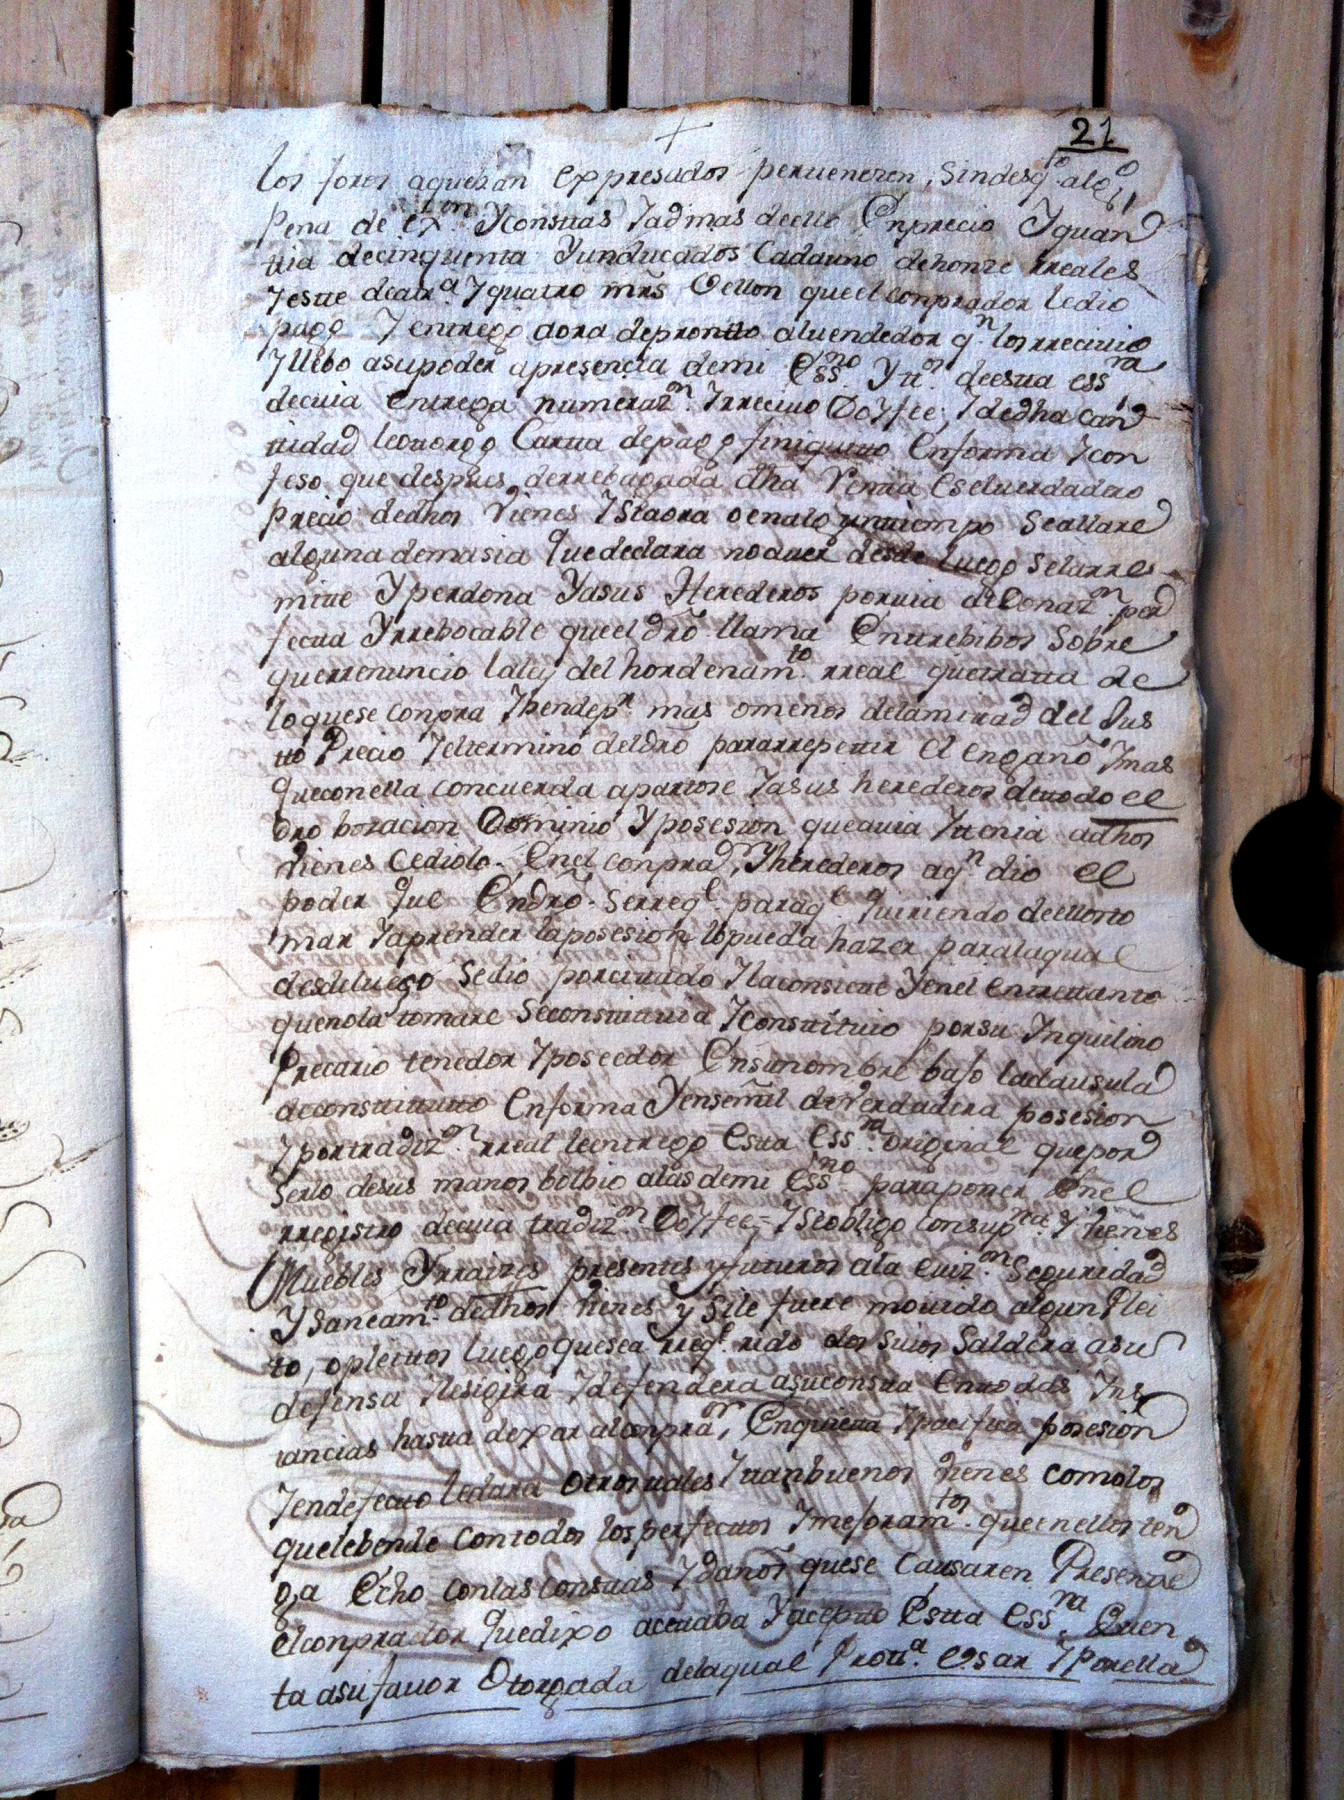 21
los foros aquezan expresados pervenezen, sindesq.to alg.o
Pena de ex.on Y Consttas Y admas deello Enprecio Y quan
ttia decinquenta Y unducados Cadauno dehonze rreales
Y estte deatr.a Y quatro mrs Vellon queel Conprador ledio
pago Y entrego aora deprontto alvendedor q.n los rrecivio
Y llebo asupoder apresencia demi Ess.no Y tt.os deestta ess.ra
decuia Entrega numeraz.on Y rrecivo Doy fee, Y dedha Can
ttidad leottorgo Cartta depago finiquitto Enforma Y con
feso que despues derrebaxada dha Ventta Eselverdadero
Precio dedhos Vienes Y siaora oenalgunttiempo Seallare
alguna demasia quedeclara noaver desde luego selarre
mitte Y perdona Y asus Herederos porvia deDonaz.on per
fectta Y rrebocable queel dro llama Entrebibos Sobre
querrenuncio laley del hordenam.to rreal quetratta de
loquese Conpra Y bende p.r mas omenos delamitad del Jus
tto Precio Y eltermino deldro pararrepettir el engaño Y mas
queconella concuerda aparttose Y asus herederos dettodo el
dro bozacion Dominio Y posesion queavia Y ttenia adhos
vienes Cediolo Enel conpra.or Y herederos aq.n dio el
poder que Endro Serreq.e paraq.e quriendo deellos to
mar Y aprender laposesion lopueda hazer paralaqual
desdeluego Sedio porcittado Y laconsiente Y enel entrettanto
quenola tomare Seconstittuia Y Constituio porsu Ynquilino
Precario tenedor Y poseedor Ensunombre bajo laclausula
deconstittutto Enforma Y enseñal deverdadera posesion
Y portradiz.on rreal leentrego Estta Ess.ra Original quepor
serlo desus manos bolbio alas demi Ess.no paraponer Enel
rregistro decuia tradiz.on Doy fee= Y seobligo Consup.na Y vienes
Muebles Y rraizes presentes y futturos ala Eviz.on Seguridad
Y Saneam.to dedhos vienes y Sile fuere movido algun Plei
to, opleittos luego quesea rreq.e rido delos suios Saldra asu
defensa Y lesigira Y defendera asuconsta Enttodas Yns
tancias hastta dexar alconpra.or Enquietta Y pacifica posesion
Y endefectto ledara Ottros tales Y ttanbuenos vienes Comolos
quelebende Contodos losperfecttos Y mejoram.tos queenellos ten
ga Echo Conlas Consttas Y daños quese Causaren Presentte
elconprador quedixo acettaba Y acepto Estta Ess.ra Enen
ta asufavor Otorgada delaqual Prott.a Usar Y Porella